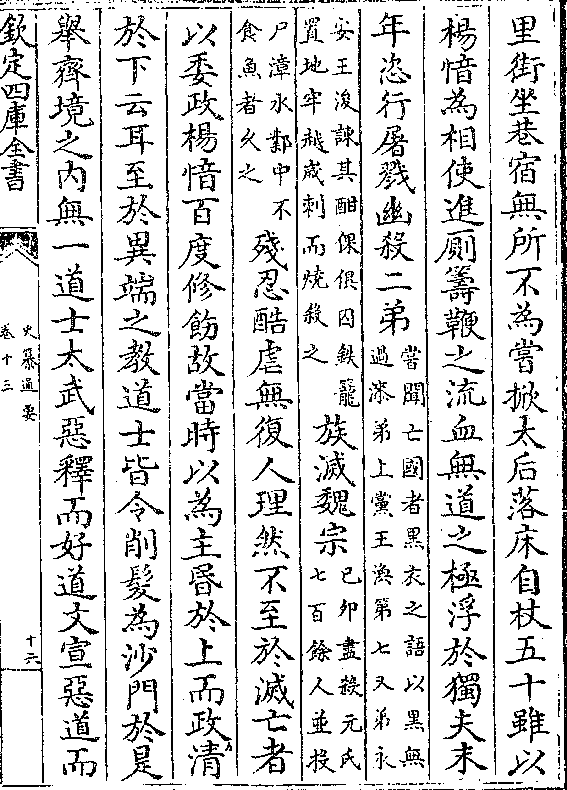 里街坐巷宿無所不為嘗掀太后落床自杖五十雖以
楊愔為相使進厠籌鞭之流血無道之極浮於獨夫末
年恣行屠戮幽殺二弟嘗聞亡國者黑衣之語以黑無
過漆弟上黨王渙第七又弟永
安王浚諫其酣倮俱囚鉄籠
置地牢越歲刺而燒殺之族滅魏宗己卯盡殺元氏
七百餘人並投
尸漳水鄴中不
食魚者乆之殘忍酷虐無復人理然不至於滅亡者
以委政楊愔百度修飭故當時以為主昏於上而政清
於下云耳至於異端之教道士皆令削髮為沙門於是
舉齊境之内無一道士太武惡釋而好道文宣惡道而
欽定四庫全書
史纂通要
卷十三
十六